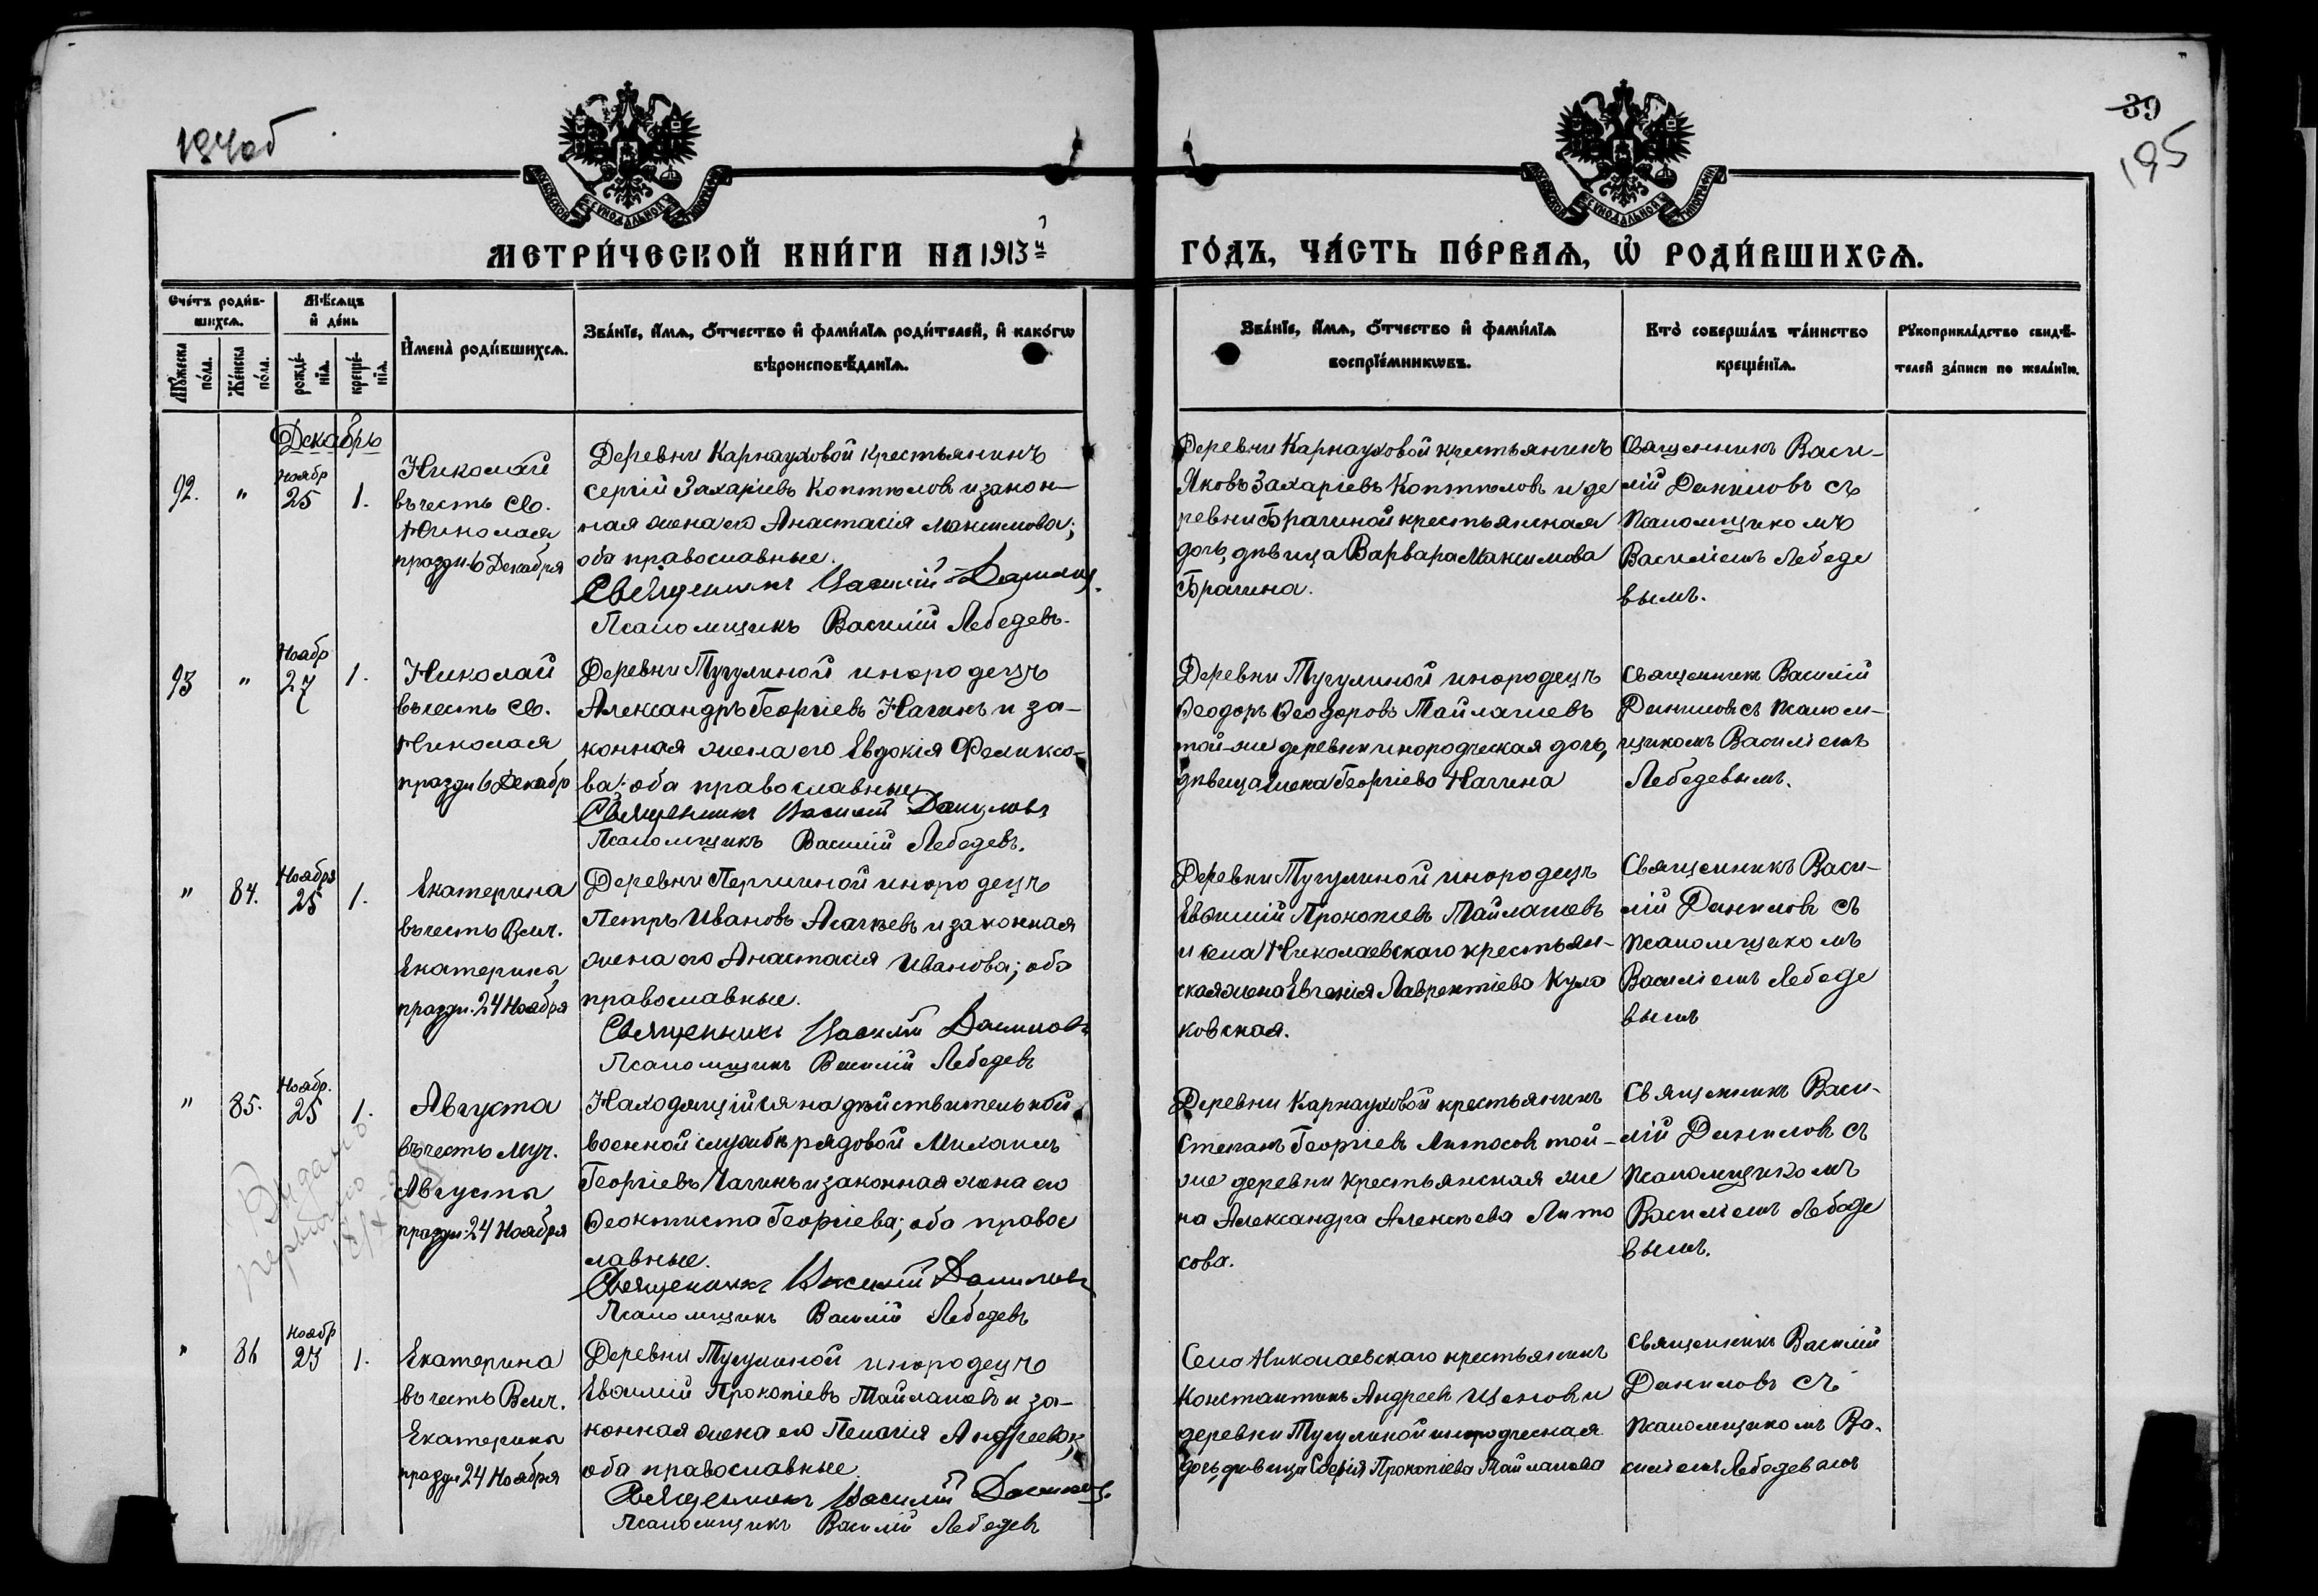 194об
39
195
МЕТРИ́ЧЕСКОЙ КНИ́ГИ НА 1913й
ГО́ДЪ, ЧА́СТЬ ПЕ́РВАѦ, Ѡ҆ РОДИ́ВШИХСѦ.
Сче́тъ роди́в-
шихсѧ.
Мѣ́сѧцъ
и҆ де́нь
Мꙋ́жеска
по́ла.
Же́нска
по́ла.
рожде́-
нїѧ.
креще́-
нїѧ.
И҆мена̀ роди́вшихсѧ.
Зва́нїе, и҆́мѧ, ѻ҆́тчество и҆ фами́лїѧ роди́телей, и҆ како́гѡ
вѣроисповѣ́данїѧ.
Зва́нїе, и҆́мѧ, ѻ҆́тчество и҆ фами́лїѧ
воспрїе́мникѡвъ.
Кто̀ соверша́лъ та́инство
креще́нїѧ.
Рꙋкоприкла́дство свидѣ́-
телей за́писи по жела́нїю.
Декабрь
92.
"
Ноябр
25
1.
Николай
въ честь св.
Николая
праздн. 6 Декабря
Деревни Карнауховой крестьянинъ
Сергій Захаріевъ Коптюловъ и закон-
ная жена его Анастасія Максимова;
оба православные.
Священникъ Василій Данилов.
Псаломщикъ Василій Лебедевъ.
Деревни Карнауховой крестьянинъ
Яковъ Захаріевъ Коптюловъ и де
ревни Брагиной крестьянская
дочь, дѣвица Варвара Максимова
Брагина.
Священникъ Васи-
лій Даниловъ съ
псаломщикомъ
Василіемъ Лебеде
вымъ.
93
"
Ноябр
27
1.
Николай
въ честь св.
Николая
праздн 6 Декабр
Деревни Тугулиной инородецъ
Александръ Георгіевъ Нагинъ и за-
конная жена его Евдокія Феликсо-
ва; оба православные
Священникъ Василій Даниловъ
Псаломщикъ Василій Лебедевъ.
Деревни Тугулиной инородецъ
Ѳеодоръ Ѳеодоровъ Майлашевъ
той-же деревни инородческая дочь,
дѣвица Георгіева Нагина
Священникъ Василій
Даниловъ съ псалом-
щикомъ Василіемъ
Лебедевымъ.
"
84.
Ноября
25
1.
Екатерина
въ честь Влмч.
Екатерины
праздн. 24 Ноября
Деревни инородецъ
Петръ Ивановъ и законная
жена его Анастасія Иванова; оба
православные.
Священникъ Василій Даниловъ
Псаломщикъ Василій Лебедевъ
Деревни Тугулиной инородецъ
Евѳимій Прокопіевъ Майлашевъ
и села Николаевскаго крестьян-
ская жена Евгенія Лаврентіева Кула
ковская.
Священникъ Васи-
лій Даниловъ съ
псаломщикомъ
Василіемъ Лебеде
вымъ
"
85.
Ноябр.
25
1.
Выдано
Августа
въ честь муч.
Августы
праздн. 24 Ноября
Находящійся на дѣйствительной
военной службѣ рядовой Михаилъ
Георгіевъ Нагинъ и законная жена его
Ѳеоктиста Георгіева; оба правос
лавные.
Священникъ Василій Даниловъ
Псаломщикъ Василій Лебедевъ
Деревни Карнауховой крестьянинъ
Степанъ Георгіевъ Литосовъ той-
же деревни крестьянская же
на Александра Алексѣева Лито
сова.
Священникъ Васи-
лій Даниловъ съ
псаломщикомъ
Василіемъ Лебеде
вымъ.
"
86
Ноябр
23
1.
Екатерина
въ честь Влмч.
Екатерины
праздн 24 Ноября
Деревни Тугулиной инородецъ
Евѳимій Прокопіевъ Майлашевъ и за-
конная жена его Пелагія Андреева;
оба православные
Священникъ Василій Данилов.
Псаломщикъ Василій Лебедевъ
Села Николаевскаго крестьянинъ
Константинъ Андреевъ и
деревни Тугулиной инородческая
дочь, дѣвица Софія Прокопіева Майлашева
Священникъ Василій
Даниловъ съ
псаломщикомъ Ва-
силіемъ Лебедевымъ